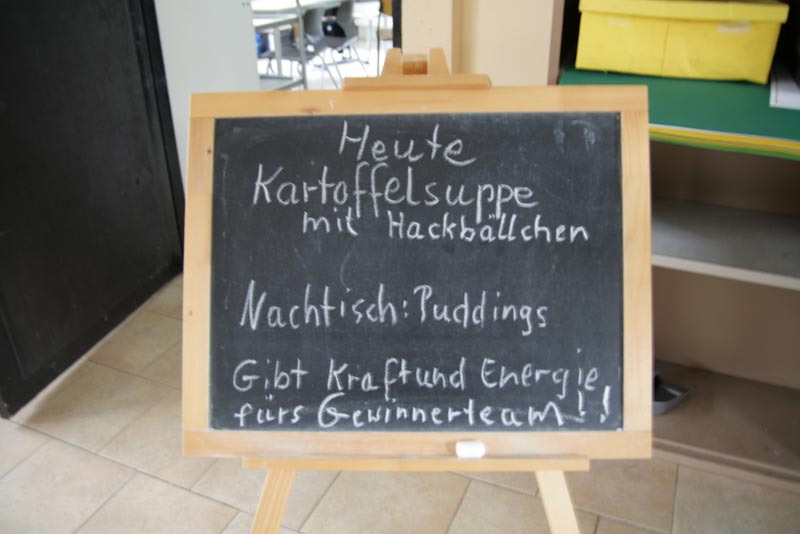 Heute
Kartoffelsuppe
mit Hackbällchen
Nachtisch: Puddings
Gibt Kraft und Energie
fürs Gewinnerteam!!